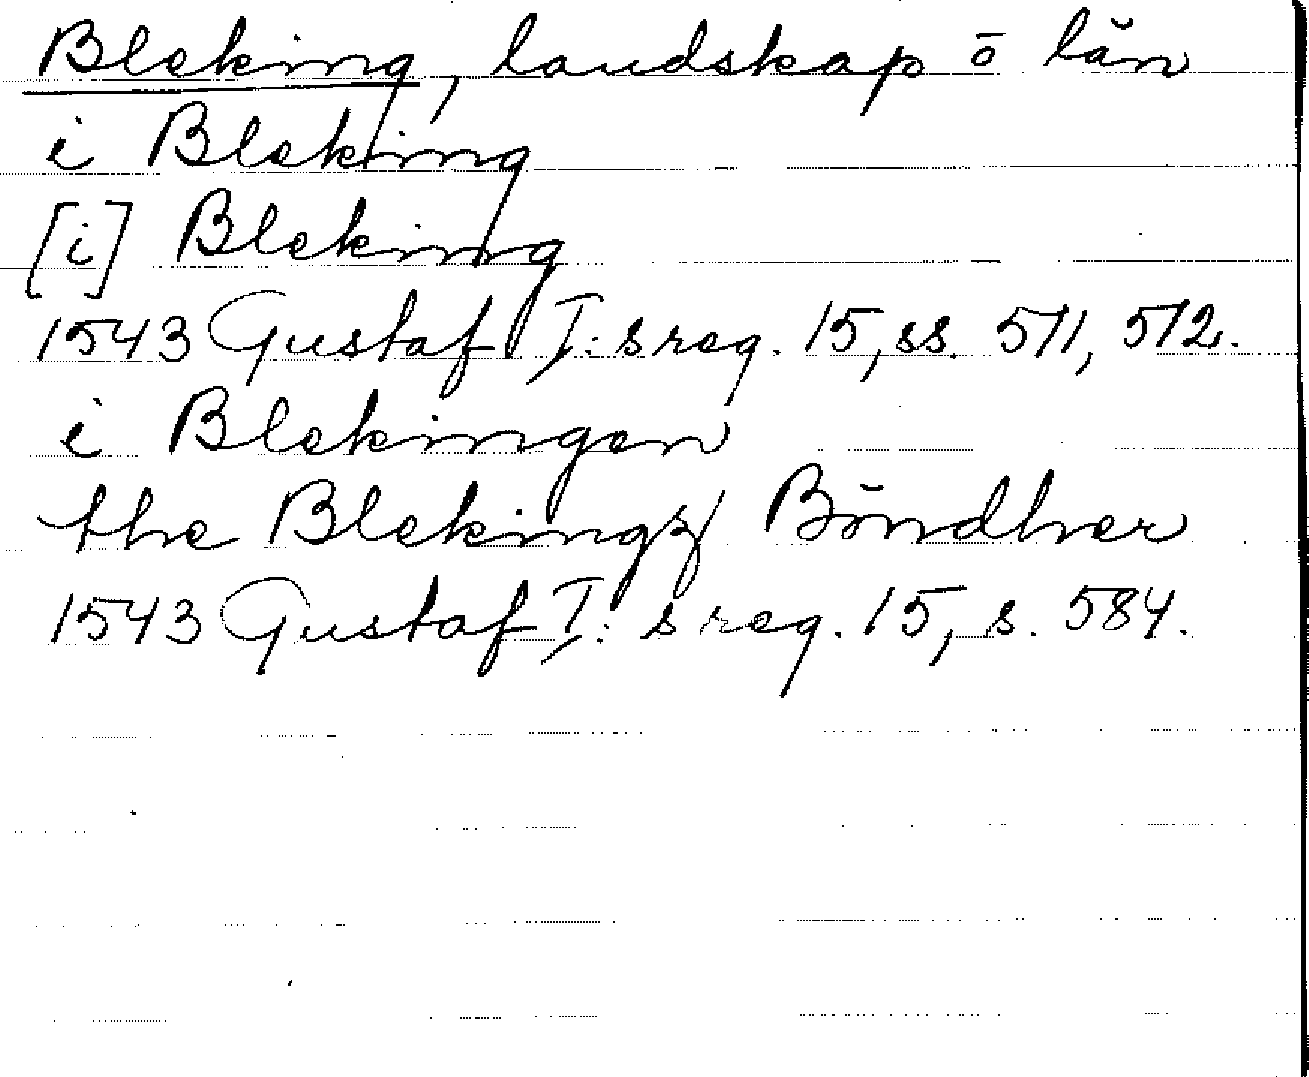 Bleking, landskap o län
i Bleking
[i] Bleking
1543 Gustaf I:s reg. 15, ss. 511, 512.
i Blekingen
the Blekingz Böndher
1543 Gustaf I:s reg. 15, s. 584.